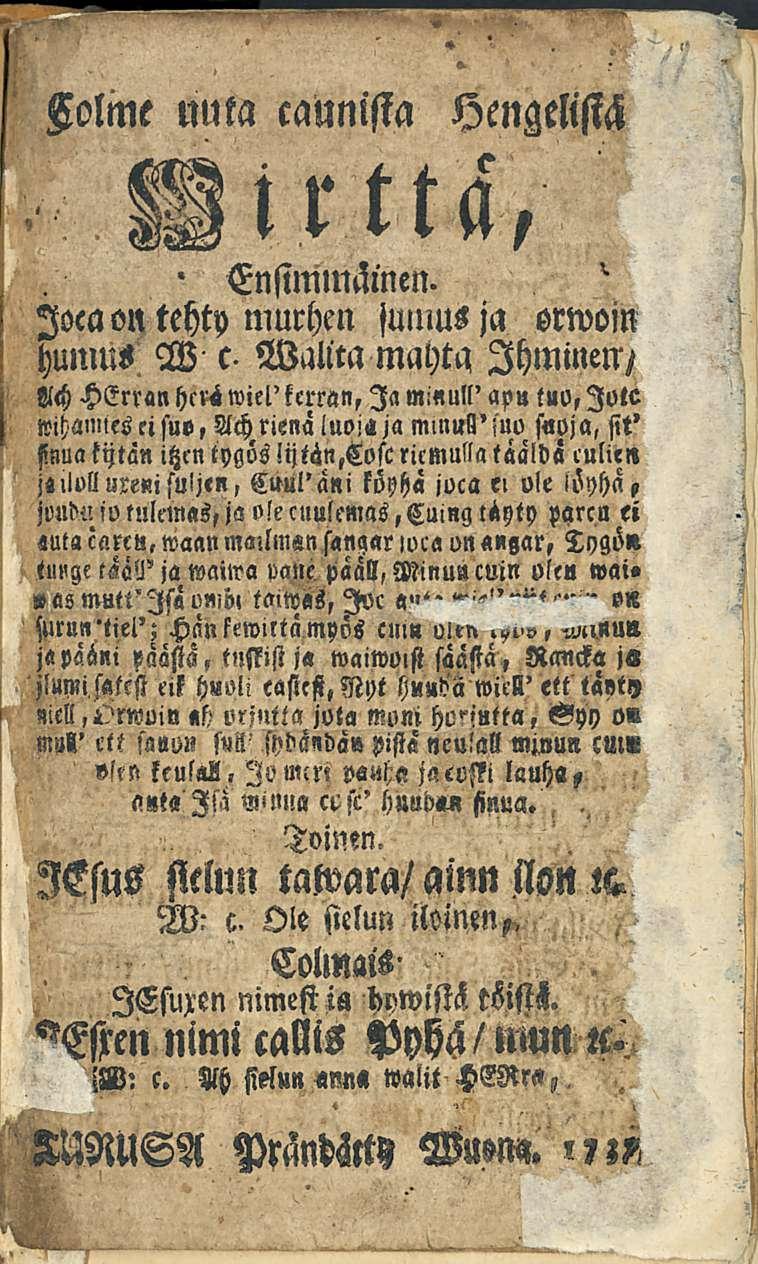 Colme uuta caunista Hengelistä
Wirttä,
Ensimmäinen.
Joca on tehty murhen juuus ja orwoin
huuus W. c. Walita mahta Ihminen/
Ach HErran herä wiel' kerran, Ja minull' apu tuo, Jote
wihamies ei suo, Ach rienä luoja ja minull' suo suoja, sit'
sinua kijtän itzen tygös lijtän, Cosc riemulla tääldä culien
ja iloll uxeni suljen, Cuul' äni köyhä joca ei ole löyhä,
joudu jo tulemas, ja ole cuulemas, Cuing täyty parcu ei
auta carcu, waan mailman sangar joca on angar, Tygön
tunge tääll' ja waiwa pane pääll, Minun cuin olen wai-
was mutt' Isä ombi taiwas, Joc on
surun tiel'; Hän kewittä myös cuin olen työs, minun
ja pääni päästä, tuskist ja waiwoist säästä, Rancka ja
ilumi satest eik huoli castest, Nyt huuda wiell' ett täyty
niell, Orwoin ah orjutta jota moni horjutta, Syy on
mull' ett sanon sull' sydändän pistä neulall minun cuin
olen keulall, Jo meri pauha ja coski lauha,
auta Isä minua cosc' huudan sinua.
Toinen.
JEsus sielun tawara/ ainn ilon ꝛc.
W: c. Ole sielun iloinen,
Colmais.
JEsuxen nimest ja hywistä töistä.
JEsxen nimi callis Pyhä/ mun ꝛc.
W: c. Ah sielun anna walit HERra,
TURUSA Prändätty Wuona. 1737